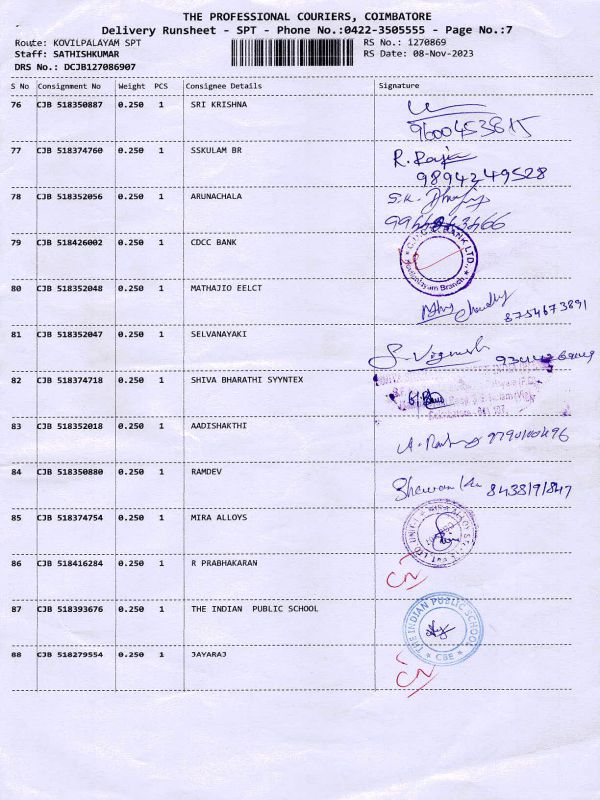 THE PROFESSIONAL COURIERS, COIMBATORE
Delivery Runsheet - SPT - Phone No.:0422-3505555 - Page No.:7
Route: KOVILPALAYAM SPT RS No.: 1270869
Staff: SATHISHKUMAR RS Date: 08-Nov-2023
DRS No.: DCJB127086907
S No Consignment No Weight PCS Consignee Details Signature
76 CJB 518350887 0.250 1 SRI KRISHNA
9600453815
77 CJB 518374760 0.250 1 SSKULAM BR R. Raja
9894249528
78 CJB 518352056 0.250 1 ARUNACHALA S.K.
79 CJB 518426002 0.250 1 CDCC BANK
BANK LTD., Kovilpalayam Branch
80 CJB 518352048 0.250 1 MATHAJIO EELCT
8754673891
81 CJB 518352047 0.250 1 SELVANAYAKI
S. Vignesh
82 CJB 518374718 0.250 1 SHIVA BHARATHI SYYNTEX
83 CJB 518352018 0.250 1 AADISHAKTHI
84 CJB 518350880 0.250 1 RAMDEV
8438191847
85 CJB 518374754 0.250 1 MIRA ALLOYS
86 CJB 518416284 0.250 1 R PRABHAKARAN
87 CJB 518393676 0.250 1 THE INDIAN PUBLIC SCHOOL
THE INDIAN PUBLIC SCHOOL
CBE
88 CJB 518279554 0.250 1 JAYARAJ